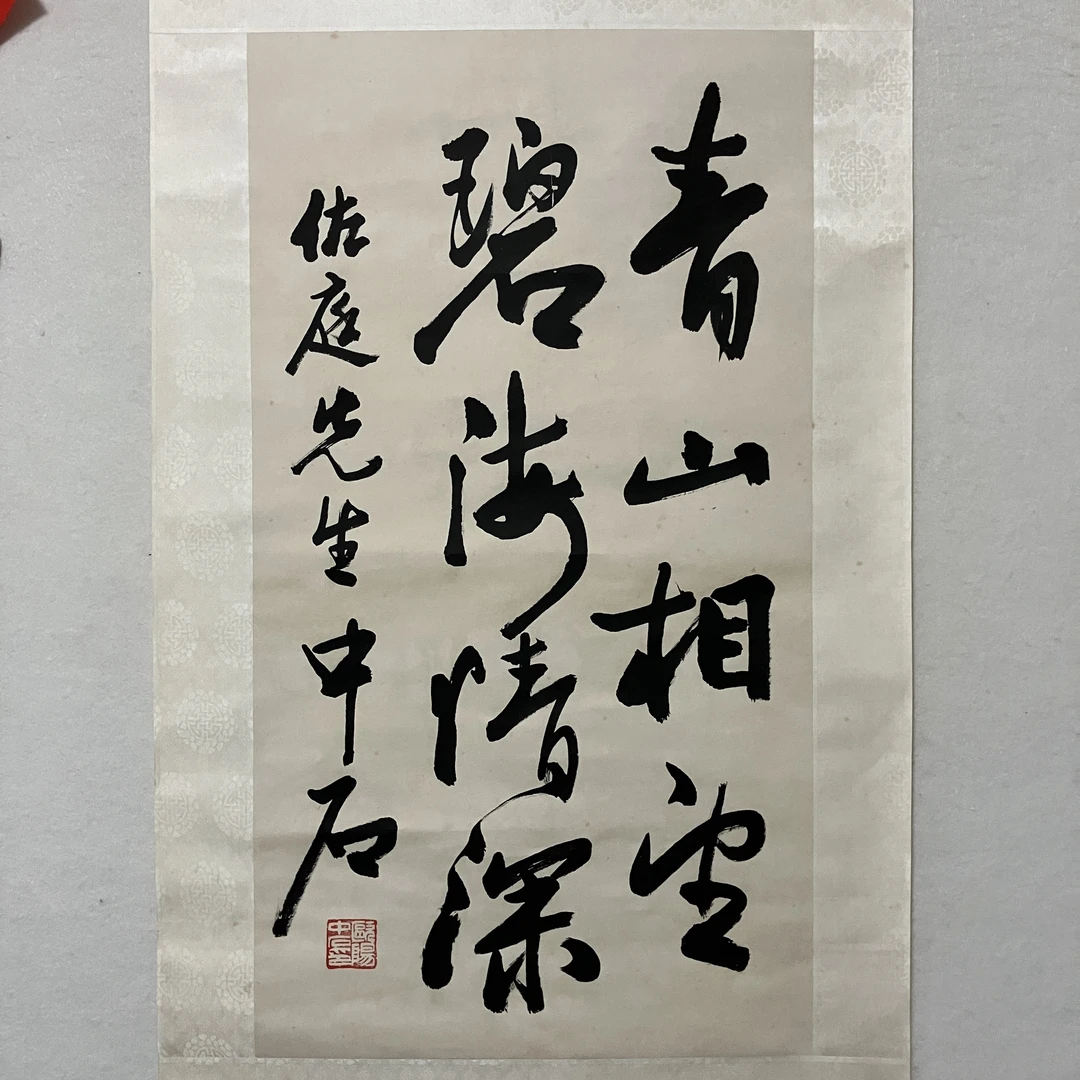 青山相望
碧海情深
佐庭先生 中石
歐陽中石印